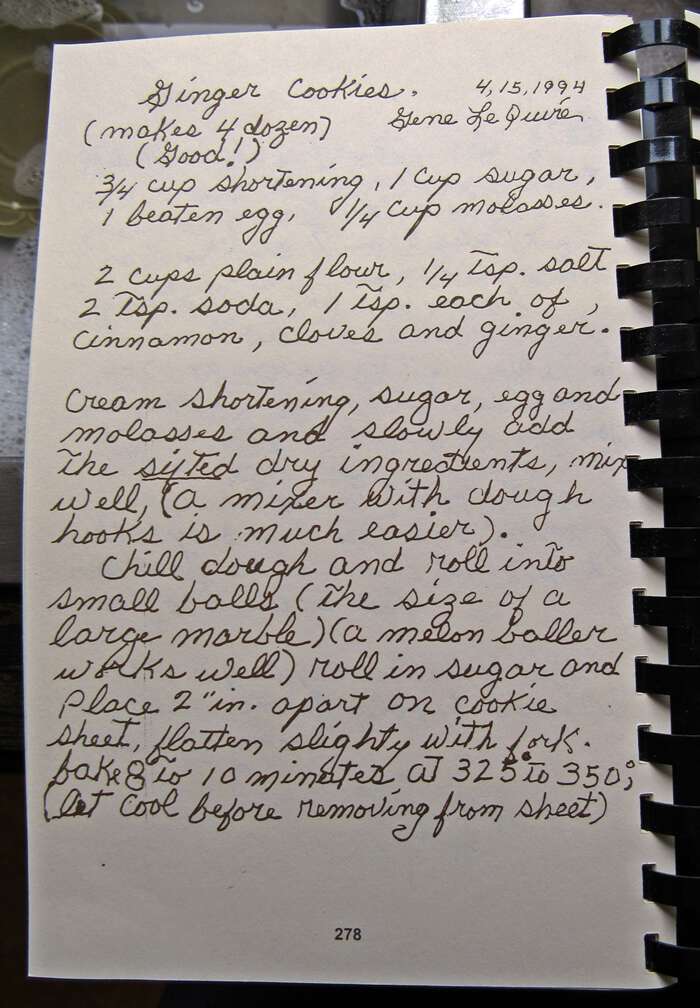 Ginger Cookies. 4,15,1994
(makes 4 dozen) Gene Le Quire
(Good!)
3/4 cup shortening, 1 cup sugar,
1 beaten egg, 1/4 cup molasses.
2 cups plain flour, 1/4 Tsp. salt
2 Tsp. soda, 1 Tsp. each of,
cinnamon, cloves and ginger.
Cream shortening, sugar, egg and
molasses and slowly add
The sifted dry ingredients, mix
well, (a mixer with dough
hooks is much easier).
Chill dough and roll into
small balls (The size of a
large marble) (a melon baller
works well) roll in sugar and
Place 2" in. apart on cookie
sheet, flatten slighty with fork.
bake 8 To 10 minutes at 325° To 350°,
(let cool before removing from sheet)
278